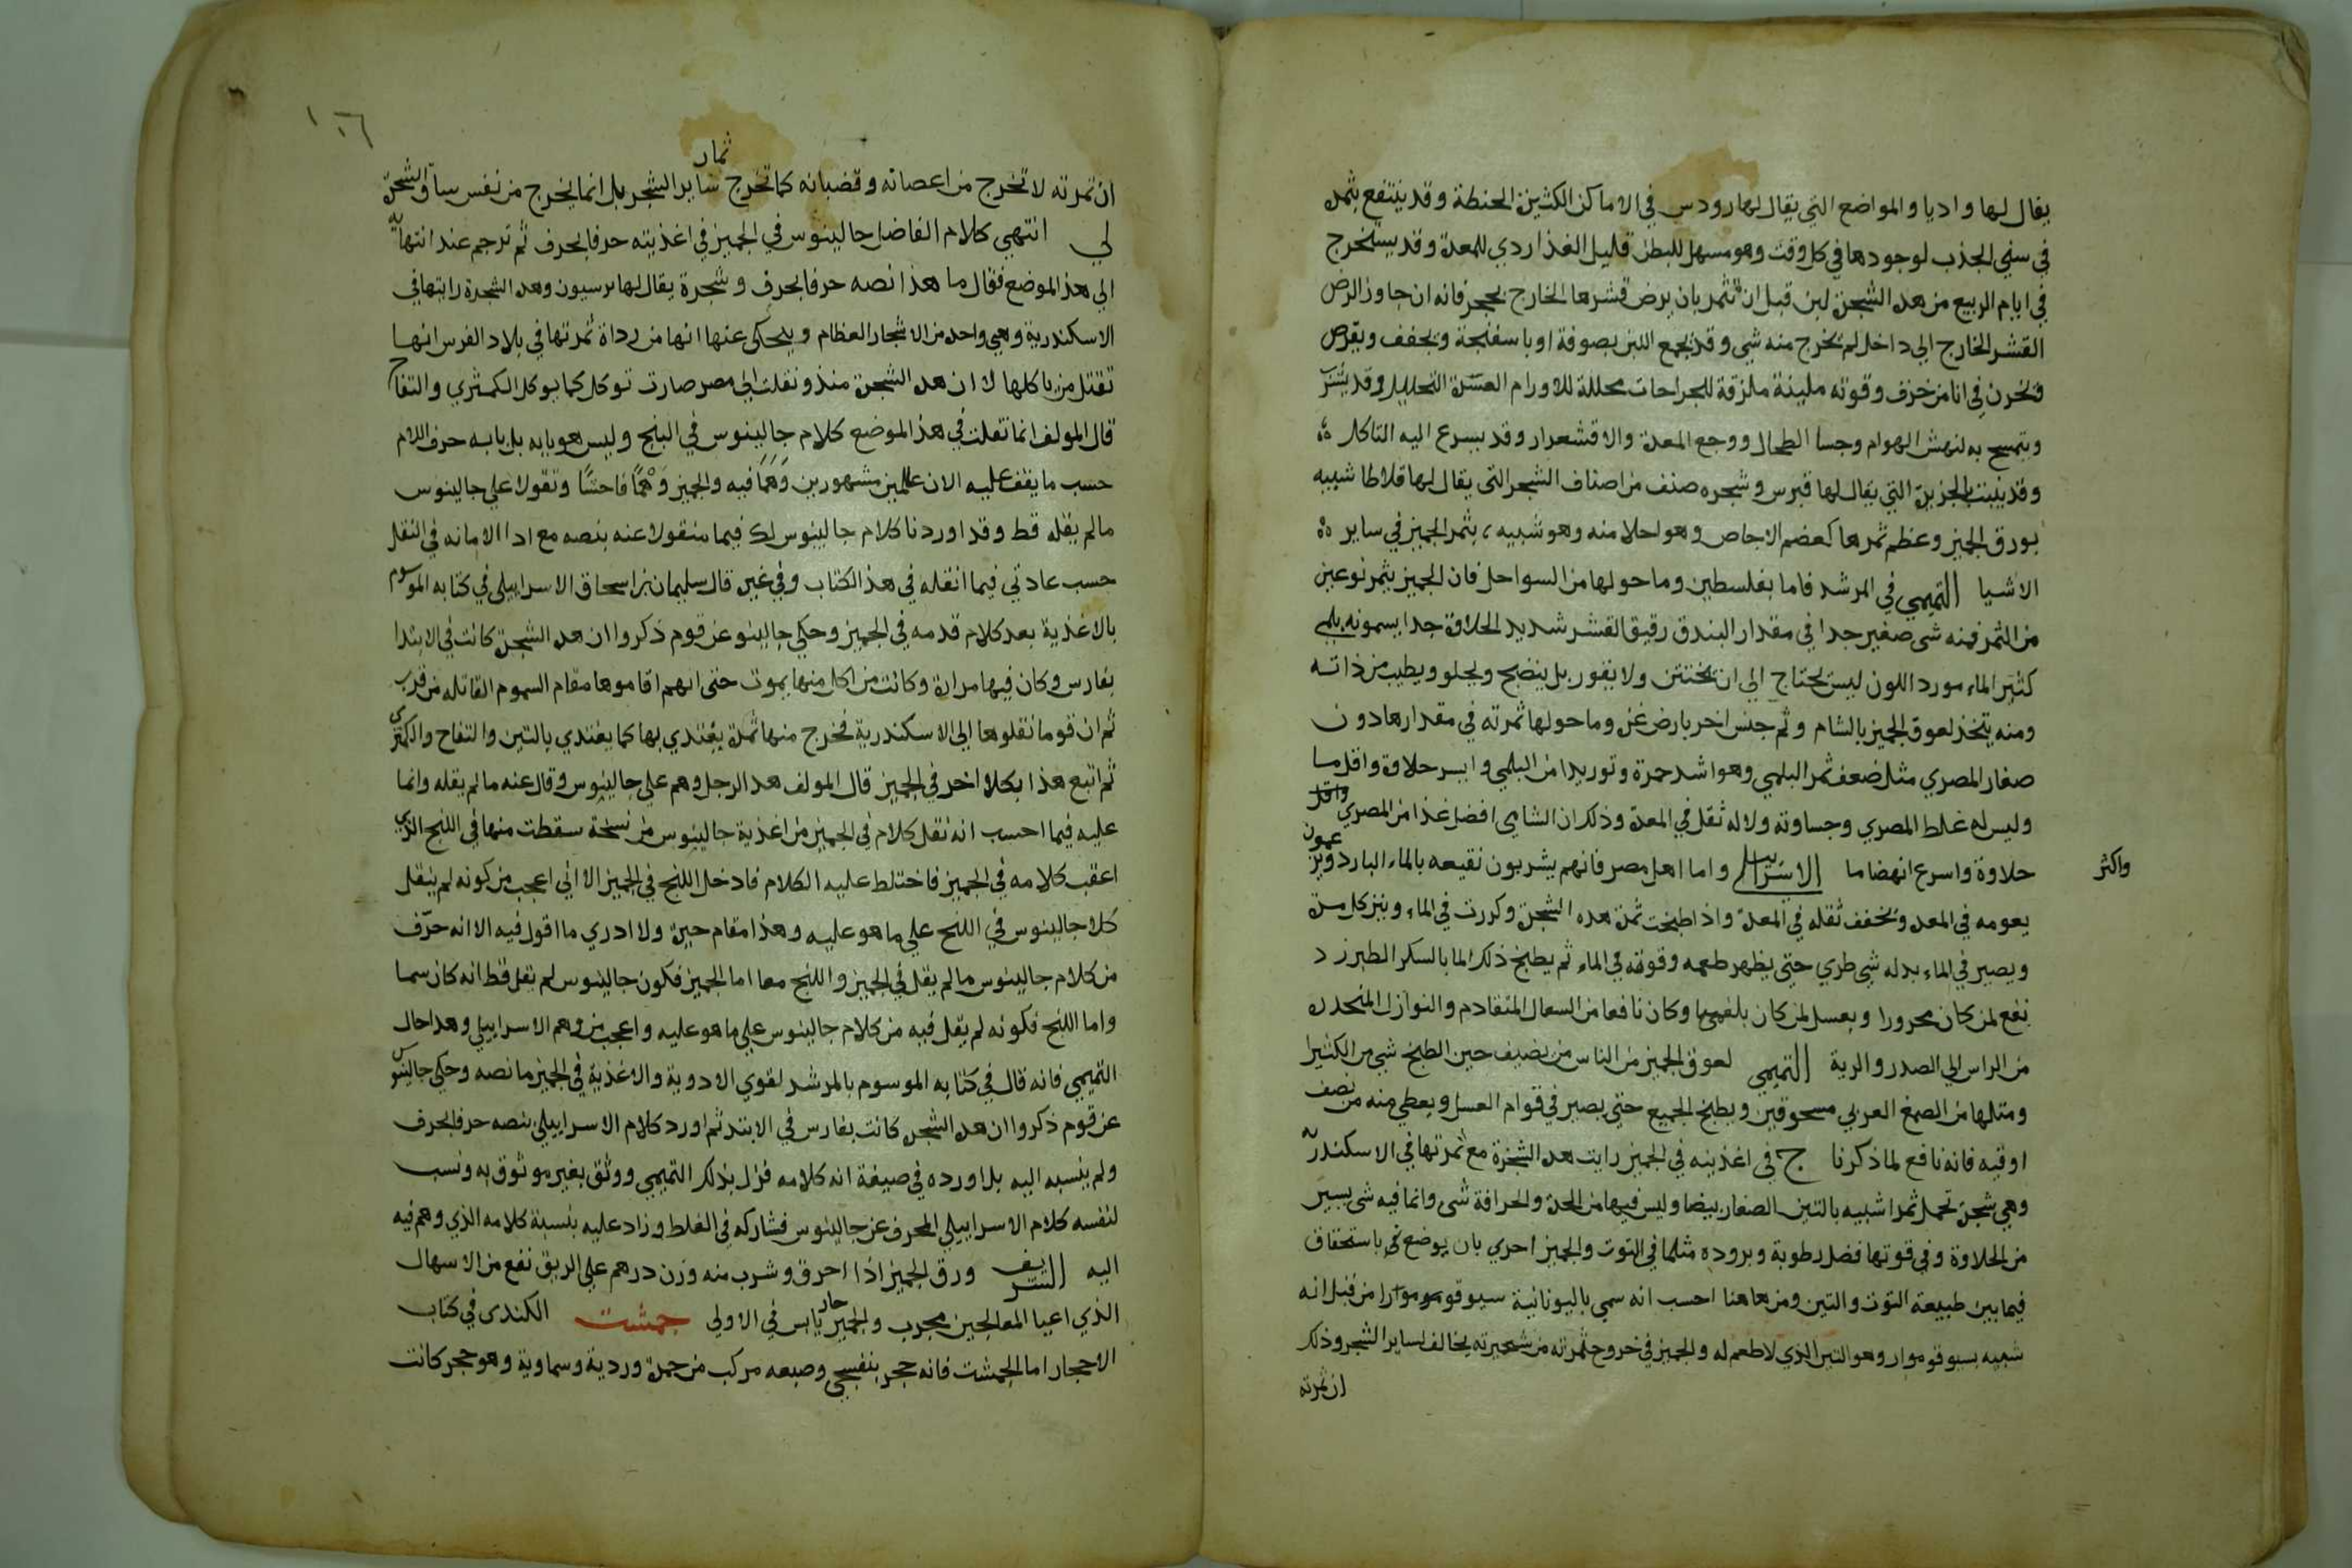 يقال لها واديا والمواضع التي يقال لها رودس في الاماكن الكثيرة الحنطة وقد ينتفع بثمره
في سني الجدب لوجودها في كل وقت وهو مسهل للبطن قليل الغذا ردي للمعدة وقد يستخرج
في ايام الربيع من هذه الشجرة لبن قبل ان تثمر بان يرض قشرها الخارج بحجر فانه ان جاوز الرض
القشر الخارج الي داخل لم يخرج منه شي وقد يجمع اللبن بصوفة او باسفنجة ويجفف ويقرص
ويخزن في انا من خزف وقوته ملينة ملزقة للجراحات محللة للاورام العسرة التحليل وقد يشرب
ويتمسح به لنهش الهوام وجسا الطحال ووجع المعدة والاقشعرار وقد يسرع اليه التاكل
وقد ينبت بالجزيرة التي يقال لها قبرس وشجره صنف من اصناف الشجر التي يقال لها قلاطا شبيه
بورق الجميز وعظم ثمرها كعضم الاجاص وهو احلا منه وهو شبيه بثمر الجميز في ساير
الاشيا التميمي في المرشد فاما بفلسطين وما حولها من السواحل فان الجميز يثمر نوعين
من الثمر فمنه شي صغير جدا في مقدار البندق رقيق القشر شديد الحلاوة جدا يسمونه بلمي
كثير الماء مورد اللون ليس يحتاج الي ان يختتن ولا يقور بل ينضج ويحلو ويطيب من ذاته
ومنه يتخذ لعوق الجميز بالشام وثم جنس اخر بارض غزه وما حولها ثمرته في مقدارها دون
صغار المصري مثل ضعف ثمر البلمي وهو اشد حمرة وتوريدا من البلمي وايسر حلاوة واقل ما
وليس له غلط المصري وجساوته ولا له ثقل في المعدة وذلك ان الشامي افضل غذا من المصري واقل
واكثر
حلاوة واسرع انهضاما الاسرايلي واما اهل مصر فانهم يشربون نقيعه بالماء البارد ويزعمون
بعومه في المعده ويخفف ثقله في المعدة واذا طبخت ثمرة هذه الشجرة وكررت في الماء وينزكل مرة
ويصير في الماء بدله شي طري حتي يظهر طعمه وقوته في الماء ثم يطبخ ذلك الما بالسكر الطبرزد
نفع لمن كان محرورا وبعسل لمن كان بلغميا وكان نافعا من السعال المتقادم والنوازل المنحدره
من الراس الي الصدر والرية التميمي لعوق الجميز من الناس من يضيف حين الطبخ شي من الكثيرا
ومثلها من الصمغ العربي مسحوقين ويطبخ الجميع حتي يصير في قوام العسل ويعطي منه من نصف
اوقيه فانه نافع لما ذكرنا ج في اغذيته في الجميز رايت هذه الشجرة مع ثمرتها في الاسكندرية
وهي شجرة تحمل ثمرا شبيه بالتين الصغار بيضا وليس فيها من الحدة والحرافة شي وانما فيه شي يسير
من الحلاوة وفي قوتها فضل رطوبة وبروده مثلما في التوت والجميز احري بان يوضع في باستحقاق
فيما بين طبيعة التوت والتين ومن هاهنا احسب انه سمي باليونانية سيوقوموارا من قبل انه
شبيه بسيوقوموار وهو التين الذي لا طعم له والجميز في خروج ثمرته من شجرته يخالف لساير الشجر وذلك
ان ثمرته
١٠٦
ان ثمرته لا تخرج من اغصانه وقضبانه كما تخرج ثمار ساير الشجر بل انما يخرج من نفس ساق الشجرة
لي انتهي كلام الفاضل جالينوس في الجميز في اغذيته حرفا بحرف ثم ترجم عند انتهايه
الي هذ الموضع فقال ما هذا نصه حرفا بحرف وشجرة يقال لها برسيون وهذه الشجرة رايتها في
الاسكندرية وهي واحد من الاشجار العظام ويحكي عنها انها من رداة ثمرتها في بلاد الفرس انها
تقتل من ياكلها لا ان هذه الشجرة منذ ونقلت الي مصر صارت توكل كما يوكل الكمثري والتفاح
قال المولف انما نقلت في هذ الموضع كلام جالينوس في البنج وليس هو بابه بل بابه حرف اللام
حسب ما يقف عليه الان عالمين مشهورين وهما فيه والجميز وهما فاحشا وتقولا علي جالينوس
مالم يقله قط وقد اوردنا كلام جالينوس لك فيما منقولا عنه بنصه مع ادا الامانه في النقل
حسب عادتي فيما انقله في هذ الكتاب وفي غيره قال سليمان بن اسحاق الاسراييلي في كتابه الموسوم
بالاغذية بعد كلام قدمه في الجميز وحكي جالينو عن قوم ذكروا ان هذه الشجرة كانت في الابتدا
بفارس وكان فيها مرارة وكانت من اكل منها يموت حتي انهم اقاموها مقام السموم القاتله من قرب
ثم ان قوما نقلوها الي الاسكندرية فخرج منها ثمرة يغتدي بها كما يغتدي بالتين والتفاح والكمثري
ثم اتبع هذا بكلام اخر في الجميز قال المولف هذ الرجل وهم علي جالينوس وقال عنه ما لم يقله وانما
عليه فيما احسب انه نقل كلام في الجميز من اغذية جالينوس من نسخة سقطت منها في اللنج الذي
اعقب كلامه في الجميز فاختلط عليه الكلام فادخل اللنج في الجميز الا اني اعجب من كونه لم ينقل
كلام جالينوس في اللنج علي ما هو عليه وهذا مقام حيرة ولا ادري ما اقول فيه الا انه حرّف
من كلام جالينوس ما لم يقل في الجميز واللنج معا اما الجميز فكون جالينوس لم يقل قط انه كان سما
واما اللنج فكونه لم يقل فيه من كلام جالينوس علي ما هو عليه واعجب من وهم الاسراييلي وهذا حال
التميمي فانه قال في كتابه الموسوم بالمرشد لقوي الادوية والاغذية في الجميز ما نصه وحكي جالينوس
عن قوم ذكروا ان هذه الشجره كانت بفارس في الابتد ثم اورد كلام الاسراييلي بنصه حرفا بحرف
ولم ينسبه اليه بل اورده في صيغة انه كلامه فزل بذلك التميمي ووثق بغير موثوق به ونسب
لنفسه كلام الاسراييلي المحرف عن جالينوس فشاركه في الغلط وزاد عليه بنسبة كلامه الذي وهم فيه
اليه الشريف ورق الجميز اذا احرق وشرب منه وزن درهم علي الريق نفع من الاسهال
الذي اعيا المعالجين مجرب والجميز حار يابس في الاولي جمشت الكندي في كتاب
الاحجار اما الجمشت فانه حجر بنفسجي وصبغه مركب من حمرة وردية وسماوية وهو حجر كانت